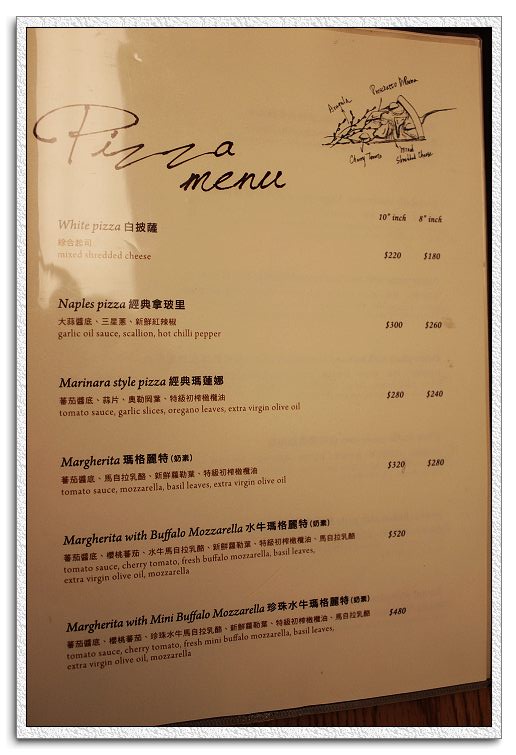 Pizza
menu
Arugula
Prosciutto di Parma
Cherry Tomato
Mixed
Shredded Cheese
10" inch 8" inch
White pizza 白披薩
綜合起司
mixed shredded cheese
$220 $180
Naples pizza 經典拿玻里
大蒜醬底、三星蔥、新鮮紅辣椒
garlic oil sauce, scallion, hot chilli pepper
$300 $260
Marinara style pizza 經典瑪蓮娜
蕃茄醬底、蒜片、奧勒岡葉、特級初榨橄欖油
tomato sauce, garlic slices, oregano leaves, extra virgin olive oil
$280 $240
Margherita 瑪格麗特(奶素)
蕃茄醬底、馬自拉乳酪、新鮮羅勒葉、特級初榨橄欖油
tomato sauce, mozzarella, basil leaves, extra virgin olive oil
$320 $280
Margherita with Buffalo Mozzarella 水牛瑪格麗特(奶素)
蕃茄醬底、櫻桃蕃茄、水牛馬自拉乳酪、新鮮羅勒葉、特級初榨橄欖油、馬自拉乳酪
tomato sauce, cherry tomato, fresh buffalo mozzarella, basil leaves,
extra virgin olive oil, mozzarella
$520
Margherita with Mini Buffalo Mozzarella 珍珠水牛瑪格麗特(奶素)
蕃茄醬底、櫻桃蕃茄、珍珠水牛馬自拉乳酪、新鮮羅勒葉、特級初榨橄欖油、馬自拉乳酪
tomato sauce, cherry tomato, fresh mini buffalo mozzarella, basil leaves,
extra virgin olive oil, mozzarella
$480